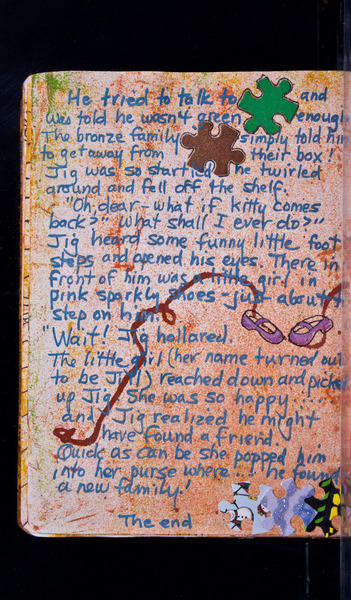 He tried to talk to and
was told he wasn't green enough
The bronze family simply told him
to get away from their box!
Jig was so startled he twirled
around and fell off the shelf.
"Oh, dear - what if kitty comes
back?" "What shall I ever do?"
Jig heard some funny little foot
steps and opened his eyes. There in
front of him was a little girl in
pink sparkly shoes - just about t
step on him!
"Wait! Jig hollared.
The little girl (her name turned out
to be Jill) reached down and picked
up Jig. She was so happy ...
and Jig realized he might
have found a friend.
Quick as can be she popped him
into her purse where... he found
a new family!
The end